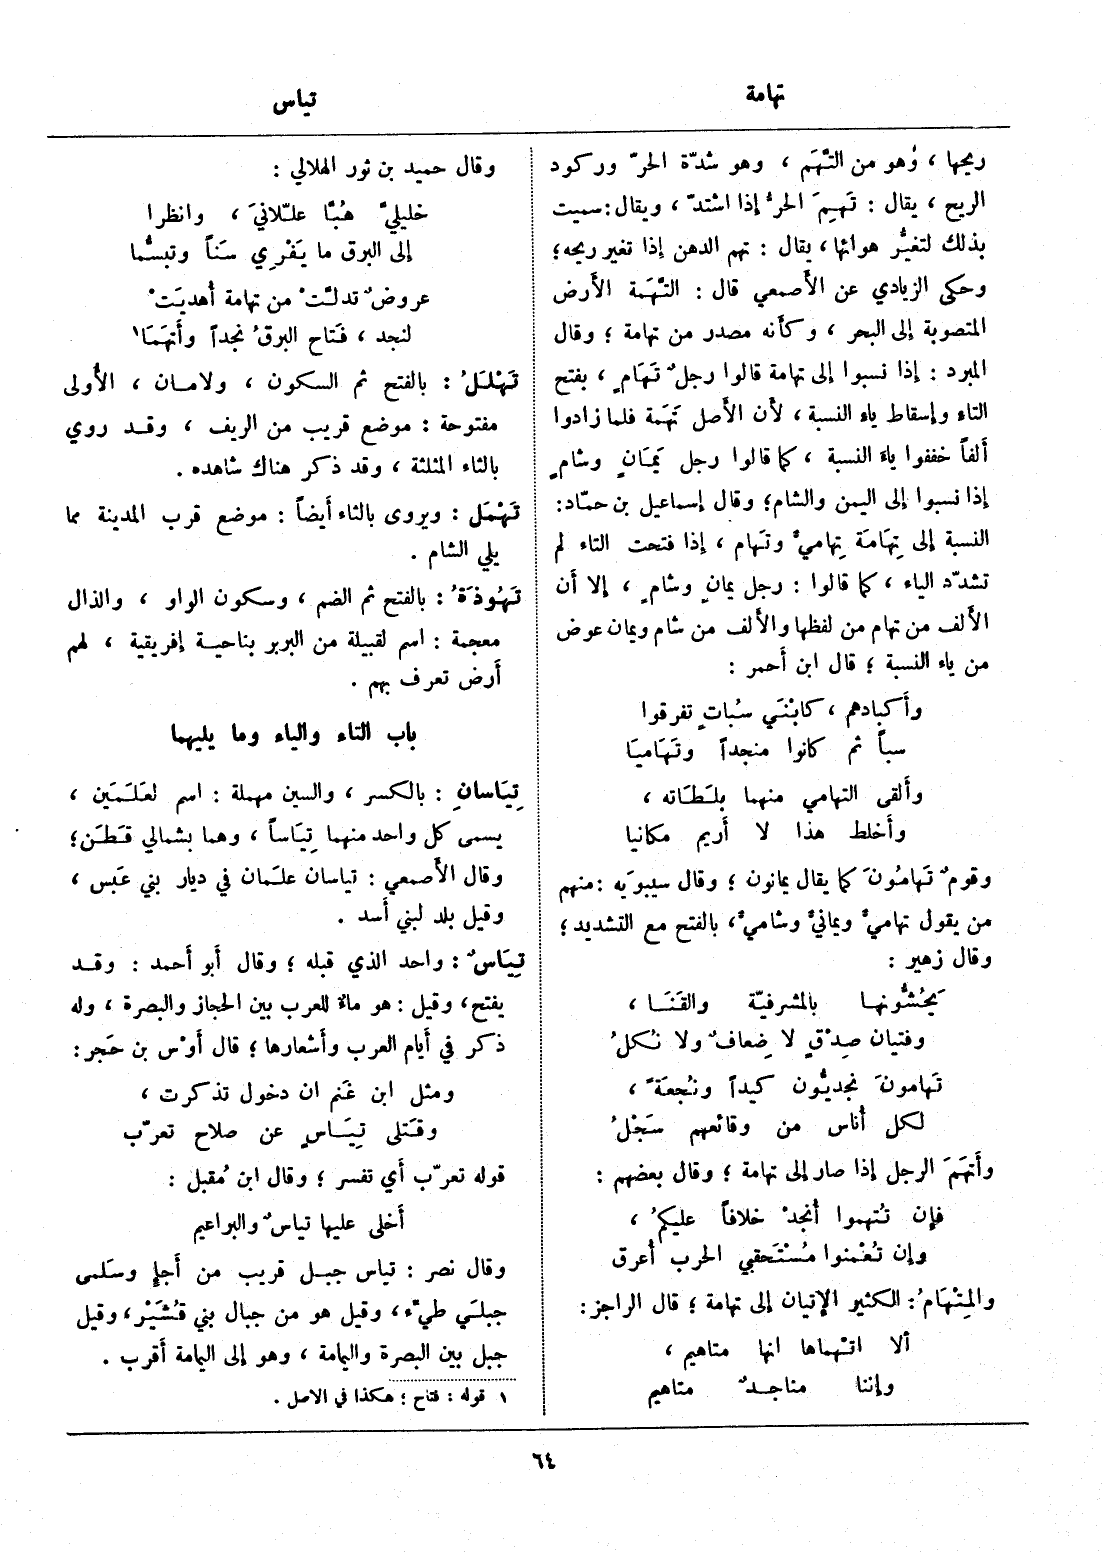 تهامة
تياس
ريحها ، وهو من التَّهَم ، وهو شدّة الحرّ وركود
الريح ، يقال : تَهِمَ الحرُّ إذا اشتدّ ، ويقال : سميت
بذلك لتغيُّر هوائها ، يقال : تهم الدهن إذا تغير ريحه ؛
وحكى الزيادي عن الأصمعي قال : التَّهَمة الأرض
المتصوبة إلى البحر ، وكأنه مصدر من تهامة ؛ وقال
المبرد : إذا نسبوا إلى تهامة قالوا رجلٌ تَهَامٍ ، بفتح
التاء وإسقاط ياء النسبة ، لأن الأصل تَهَمة فلما زادوا
ألفاً خففوا ياء النسبة ، كما قالوا رجل يَمَانٍ وشامٍ
إذا نسبوا إلى اليمن والشام ؛ وقال إسماعيل بن حمّاد :
النسبة إلى تِهَامَة تِهاميٌّ وتَهام ، إذا فتحت التاء لم
تشدّد الياء ، كما قالوا : رجل يمانٍ وشامٍ ، إلا أن
الألف من تهام من لفظها والألف من شام ويمان عوض
من ياء النسبة ؛ قال ابن أحمر :
وأكبادهم ، كابْنَي سُباتٍ تفرقوا
سباً ثم كانوا منجداً وتَهَاميَا
وألقى التهامي منهما بلَطَاته ،
وأخلط هذا لا أريم مكانيا
وقومٌ تَهامُونَ كما يقال يمانون ؛ وقال سيبوَيه : منهم
من يقول تهاميٌّ ويمانيٌّ وشاميٌّ ، بالفتح مع التشديد ؛
وقال زهير :
يَحُشُّونها بالمشرفيّة والقَنَا ،
وفتيان صِدْقٍ لا ضِعافٌ ولا نُكلُ
تَهامونَ نجديُّون كيداً ونُجعَةً ،
لكل أُناس من وقائعهم سَجْلُ
وأَتهَمَ الرجل إذا صار إلى تهامة ؛ وقال بعضهم :
فإن تُتهموا أُنجدْ خلافاً عليكمُ ،
وإن تُعْمنوا مُسْتَحقبي الحرب أُعرق
والمِتْهامُ : الكثير الإتيان إلى تهامة ؛ قال الراجز :
ألا اتْهماها انها متاهيم ،
وإننا مناجدٌ متاهيم
وقال حميد بن ثور الهلالي :
خليليَّ هُبّا علّلانيَ ، وانظرا
إلى البرق ما يَفْرِي سَناً وتبسُّما
عروضٌ تدلتْ من تهامة أُهديَتْ
لنجد ، فَتاح البرقُ نجداً وأَتهَمَا ١
تَهْلَلُ : بالفتح ثم السكون ، ولامان ، الأُولى
مفتوحة : موضع قريب من الريف ، وقد روي
بالثاء المثلثة ، وقد ذكر هناك شاهده .
تَهْمَل : ويروى بالثاء أيضاً : موضع قرب المدينة مما
يلي الشام .
تَهُوذَةُ : بالفتح ثم الضم ، وسكون الواو ، والذال
معجمة : اسم لقبيلة من البربر بناحية إفريقية ، لهم
أَرض تعرف بهم .
باب التاء والياء وما يليهما
تِيَاسانِ : بالكسر ، والسين مهملة : اسم لعَلَمَين ،
يسمى كل واحد منهما تِيَاساً ، وهما بشمالي قَطَن ؛
وقال الأصمعي : تياسان علَمان في ديار بني عَبس ،
وقيل بلد لبني أَسد .
تِيَاسٌ : واحد الذي قبله ؛ وقال أبو أحمد : وقد
يفتح ، وقيل : هو ماءٌ للعرب بين الحجاز والبصرة ، وله
ذكر في أَيام العرب وأشعارها ؛ قال أَوْس بن حَجر :
ومثل ابن غَنم ان دخول تذكرت ،
وقَتلى تِيَاسٍ عن صلاح تعرّب
قوله تعرّب أَي تفسر ؛ وقال ابن مُقبل :
أَخلى عليها تياسٌ والبراعيم
وقال نصر : تياس جبل قريب من أَجإٍ وسَلمى
جبلَي طيّء ، وقيل هو من جبال بني قُشَيْر ، وقيل
جبل بين البصرة واليمامة ، وهو إلى اليمامة أقرب .
١ قوله : فتاح ؛ هكذا في الاصل .
٦٤